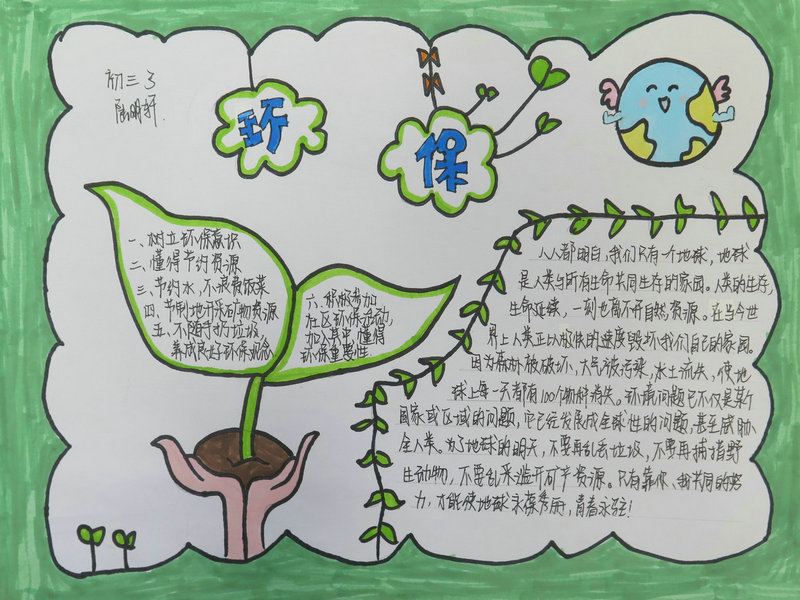 初三3
陆明轩
环保
一、树立环保意识
二、懂得节约资源
三、节约水,不浪费蔬菜
四、节制地开采矿物资源
五、不随手扔垃圾,
养成良好环保观念
六、积极参加
社区环保活动,
加入其中,懂得
环保重要性.
人人都明白,我们只有一个地球,地球
是人类与所有生命共同生存的家园。人类的生存,
生命延续,一刻也离不开自然资源。在当今世
界上人类正以极快的速度毁坏我们自己的家园。
因为森林被破坏,大气被污染,水土流失,使地
球上每一天都有100个物种消失。环境问题已不仅是某个
国家或区域的问题,它已经发展成全球性的问题,甚至威胁
全人类。为了地球的明天,不要再乱丢垃圾,不要再捕猎野
生动物,不要乱采滥开矿产资源。只有靠你、我共同的努
力,才能使地球永葆秀丽,青春永驻!